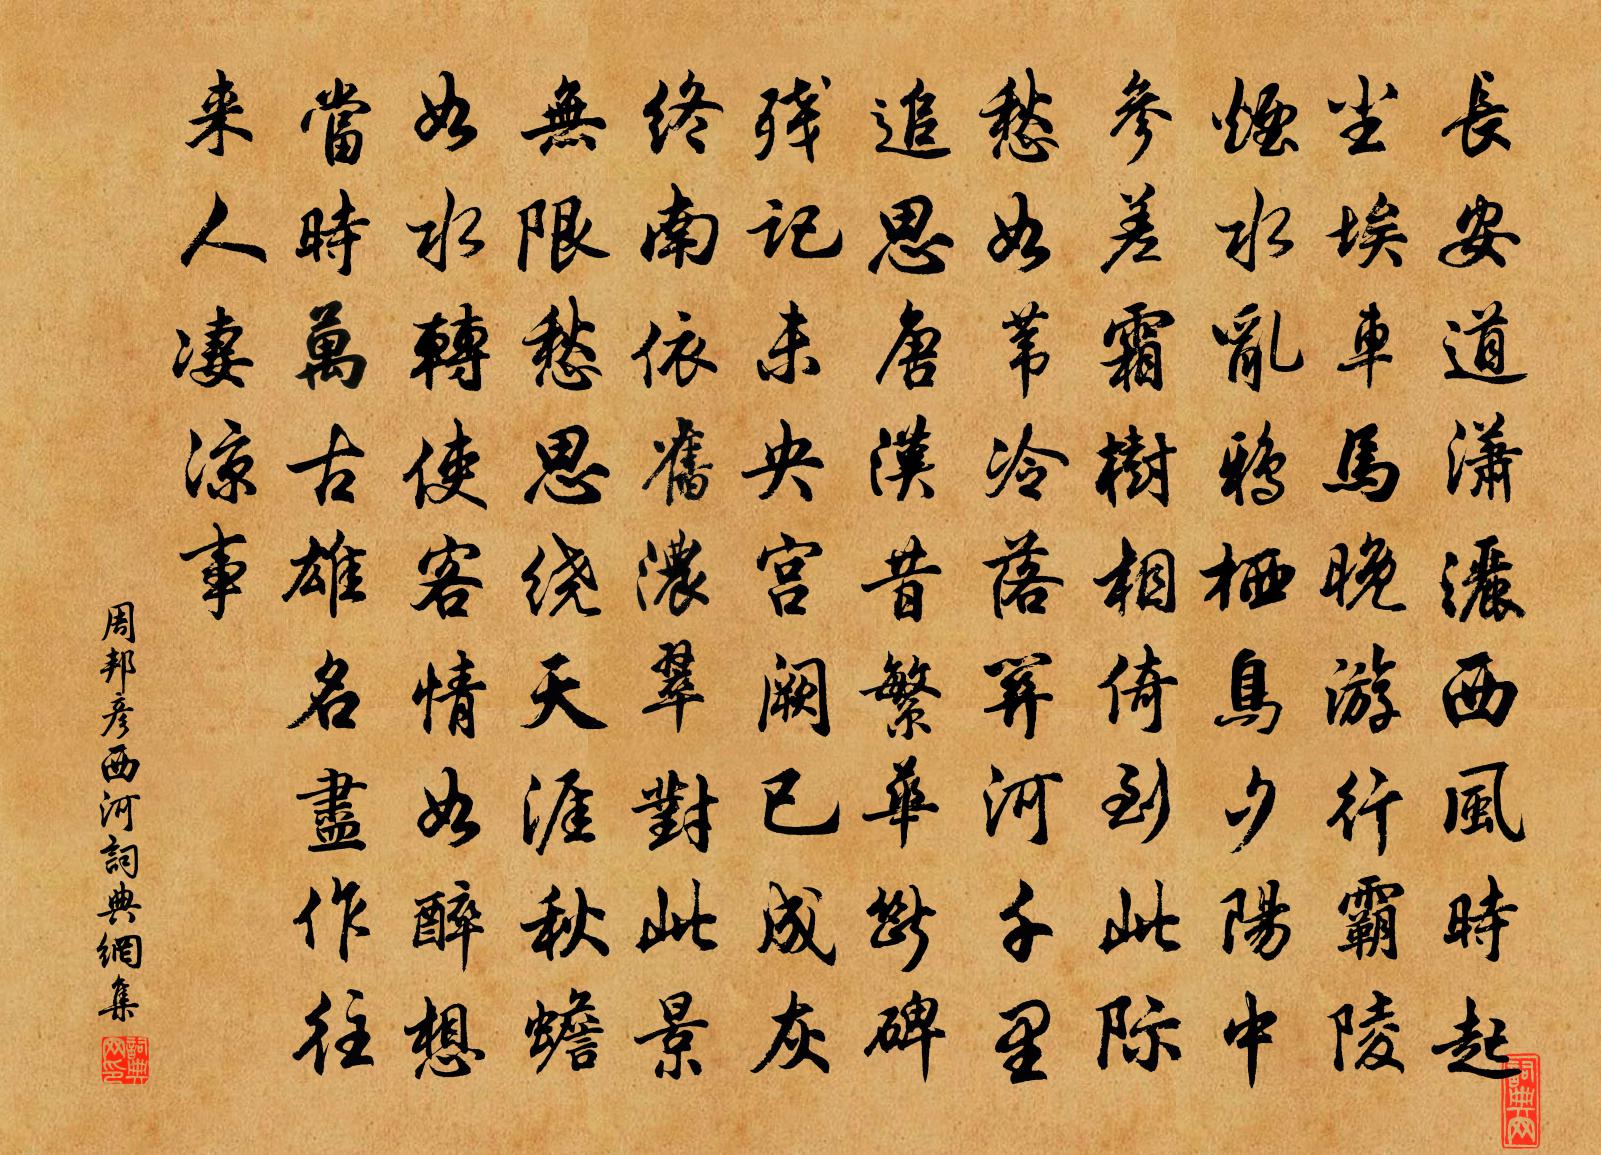 長安道瀟灑西風時起
尘埃車馬晚游行霸陵
煙水亂鴉栖鳥夕陽中
參差霜樹相倚到此际
愁如苇冷落関河千里
追思唐漢昔繁華斷碑
残记未央宫闕已成灰
終南依舊濃翠對此景
無限愁思绕天涯秋蟾
如水轉使客情如醉想
當時萬古雄名盡作往
来人凄凉事
周邦彦西河詞典網集
詞典网印
詞典网